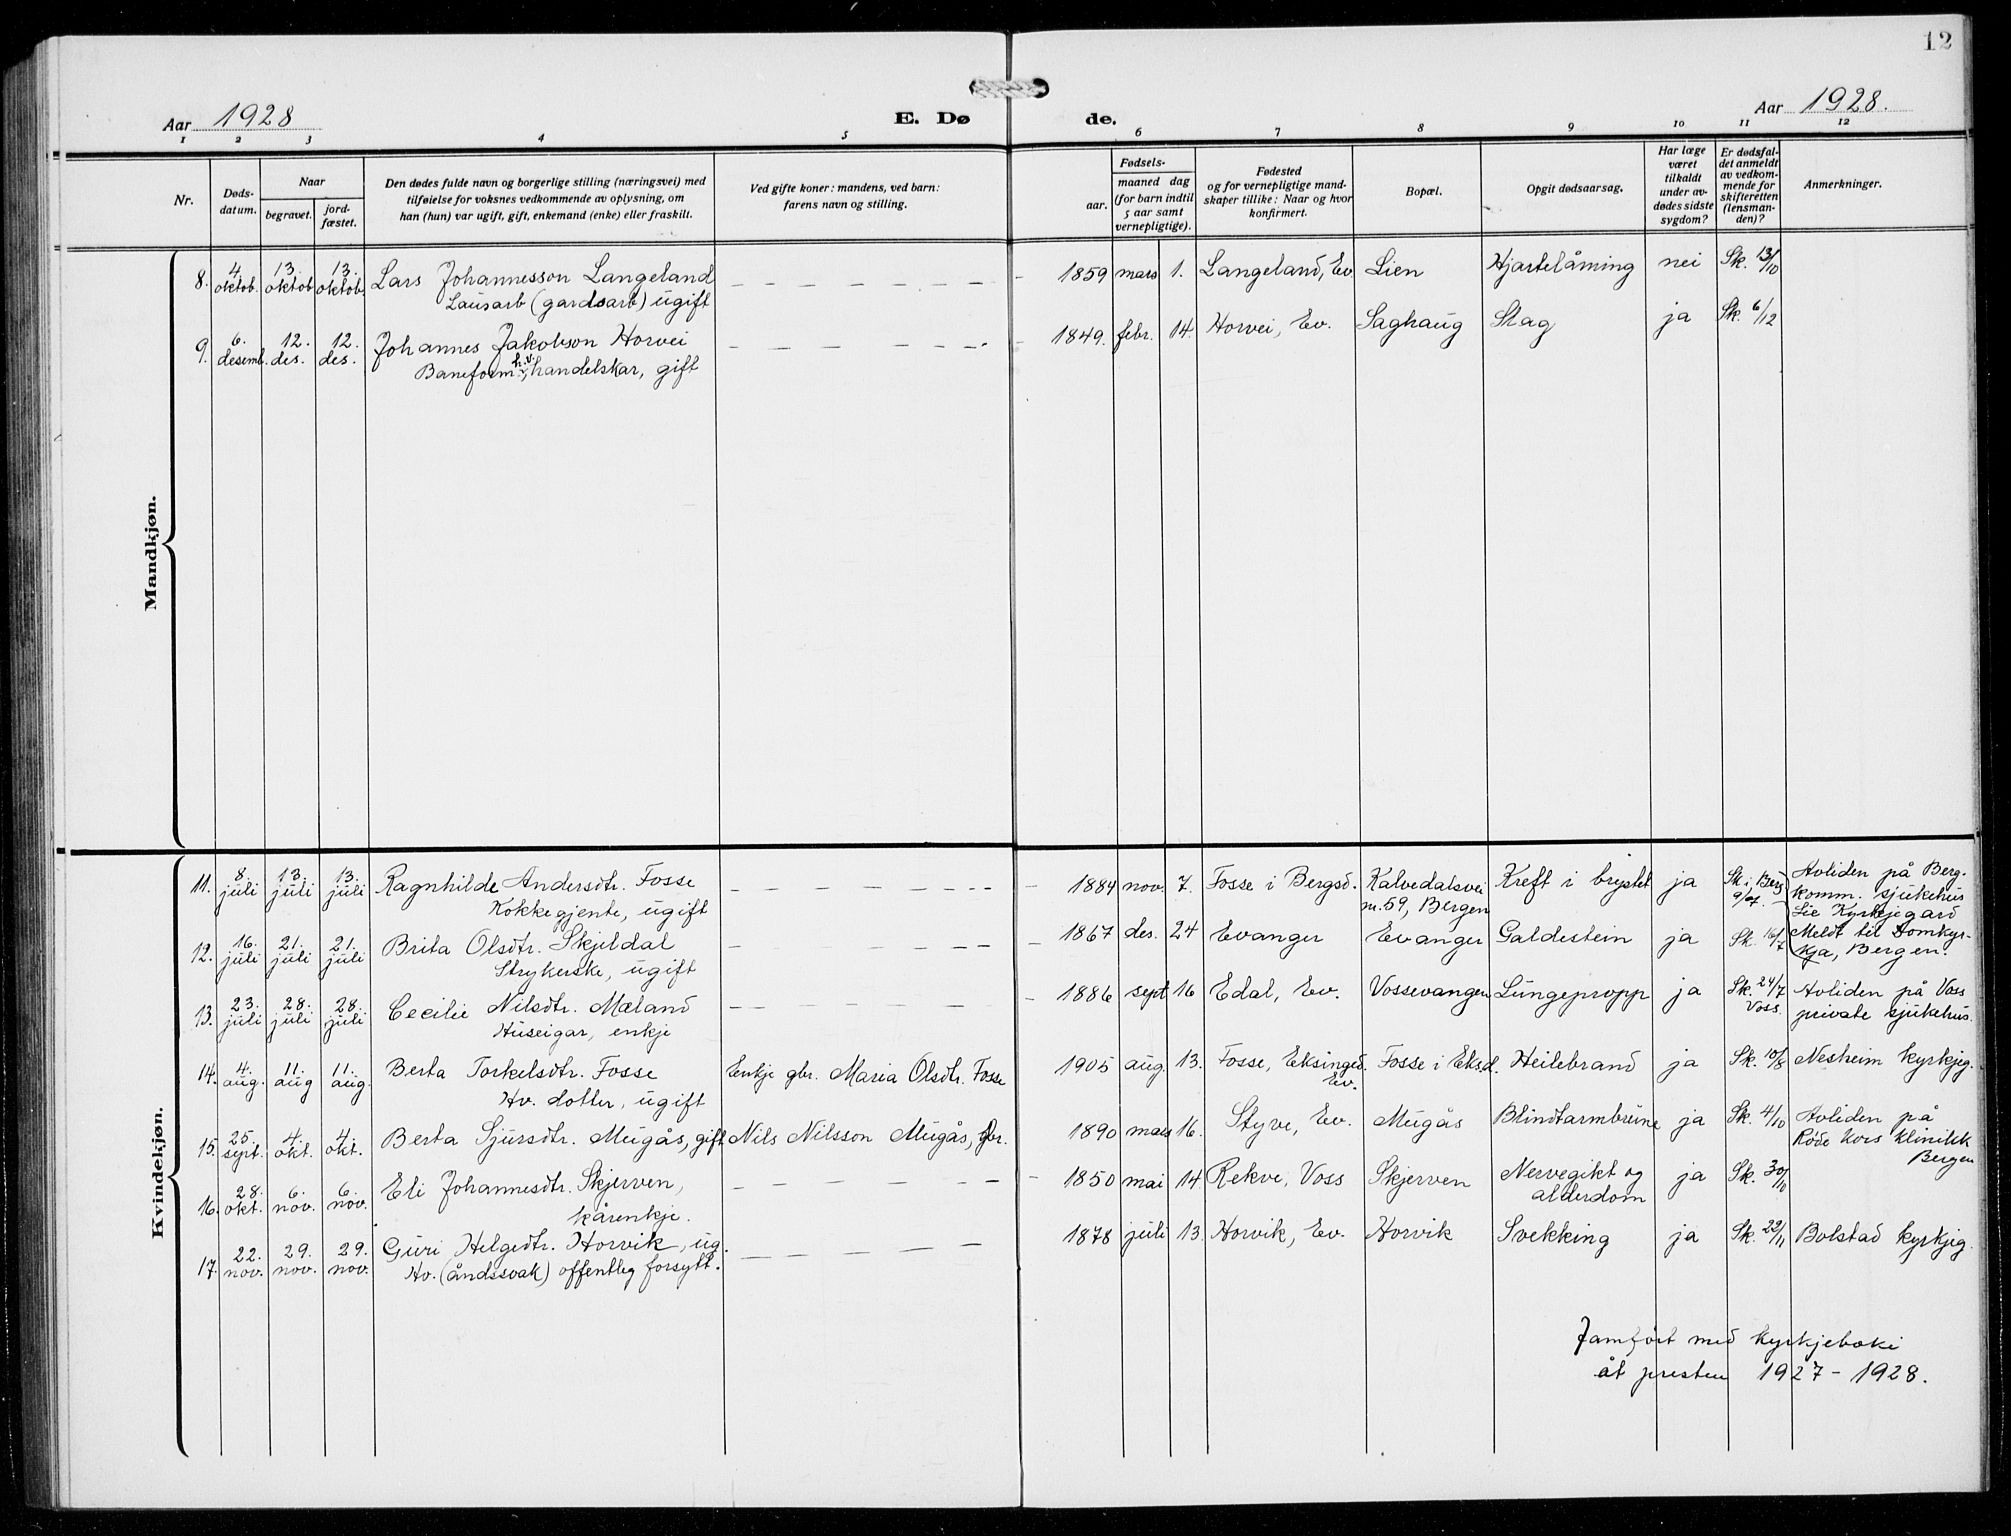 12
Aar 1928
E. Dø
de.
Aar 1928.
1 2 3 4 5 6 7 8 9 10 11 12
Nr.
Døds-
datum.
Naar
begravet.
jord-
fæstet.
Den dødes fulde navn og borgerlige stilling (næringsvei) med
tilføielse for voksnes vedkommende av oplysning, om
han (hun) var ugift, gift, enkemand (enke) eller fraskilt.
Ved gifte koner: mandens, ved barn:
farens navn og stilling.
Fødsels-
aar.
maaned dag
(for barn indtil
5 aar samt
vernepligtige).
Fødested
og for vernepligtige mand-
skaper tillike: Naar og hvor
konfirmert.
Bopæl.
Opgit dødsaarsag.
Har læge
været
tilkaldt
under av-
dødes sidste
sygdom?
Er dødsfal-
det anmeldt
av vedkom-
mende for
skifteretten
(lensman-
den)?
Anmerkninger.
Mandkjøn.
8. 4. oktob. 13. oktob. 13. oktob. Lars Johannesson Langeland — — — — — — 1859 mars 1. Langeland, Ev Lien Hjartelåming nei Sk. 13/10
Lausarb (gardsarb) ugift
9. 6. desemb. 12. des. 12. des. Johannes Jakobson Horvei — — — — — — 1849. febr. 14. Horvei, Ev. Saghaug Slag ja Sk. 6/12
Baneform. h.v., handelskar, gift
Kvindekjøn.
11. 8. juli 13. juli 13. juli Ragnhilde Andersdtr. Fosse — — — — — — 1884 nov. 7. Fosse i Bergsd. Kalvedalsvei Kreft i brystet ja Sk i Berg 9/7. Avliden på Berg.
Kokkegjente, ugift nr. 59, Bergen komm. sjukehus
Sie Kyrkjegard
12. 16. juli 21. juli 21. juli Brita Olsdtr. Skjeldal — — — — — — 1867 des. 24 Evanger Evanger Galdestein ja Sk. 16/7 Meldt til Domkyr-
Strykerske, ugift kja, Bergen.
13. 23. juli 28. juli 28. juli Cecilie Nilsdtr. Mæland — — — — — — 1886 sept 16 Edal, Ev. Vossevangen Lungepropp ja Sk. 24/7 Voss. Avliden på Voss
Huseigar, enkje private sjukehus.
14. 4. aug. 11. aug 11. aug. Berta Torkelsdtr. Fosse Enkje gbr. Maria Olsdtr. Fosse 1905 aug. 13. Fosse, Eksinged. Ev. Fosse i Eksd. Heilebrand ja Sk. 10/8 Nesheim kyrkjeg.
Hv. dotter, ugift
15. 25. sept. 4. okt. 4. okt. Berta Sjursdtr. Mugås, gift Nils Nilsson Mugås, gbr. 1890 mars 16. Styve, Ev. Mugås Blindtarmbrune ja Sk. 4/10 Avliden på
Røde Kors klinikk
Bergen
16. 28. okt. 6. nov. 6. nov. Eli Johannesdtr. Skjerven, — — — — — — 1850 mai 14 Rekve, Voss Skjerven Nervegikt og ja Sk. 30/10
kårenkje. alderdom
17. 22. nov. 29. nov. 29. nov. Guri Helgedtr. Horvik, ug. — — — — — — 1878 juli 13. Horvik, Ev. Horvik Svekking ja Sk. 22/11 Bolstad kyrkjeg.
Hv. (åndssvak) offentleg forsytt.
Jamført med kyrkjeboki
åt presten 1927 - 1928.